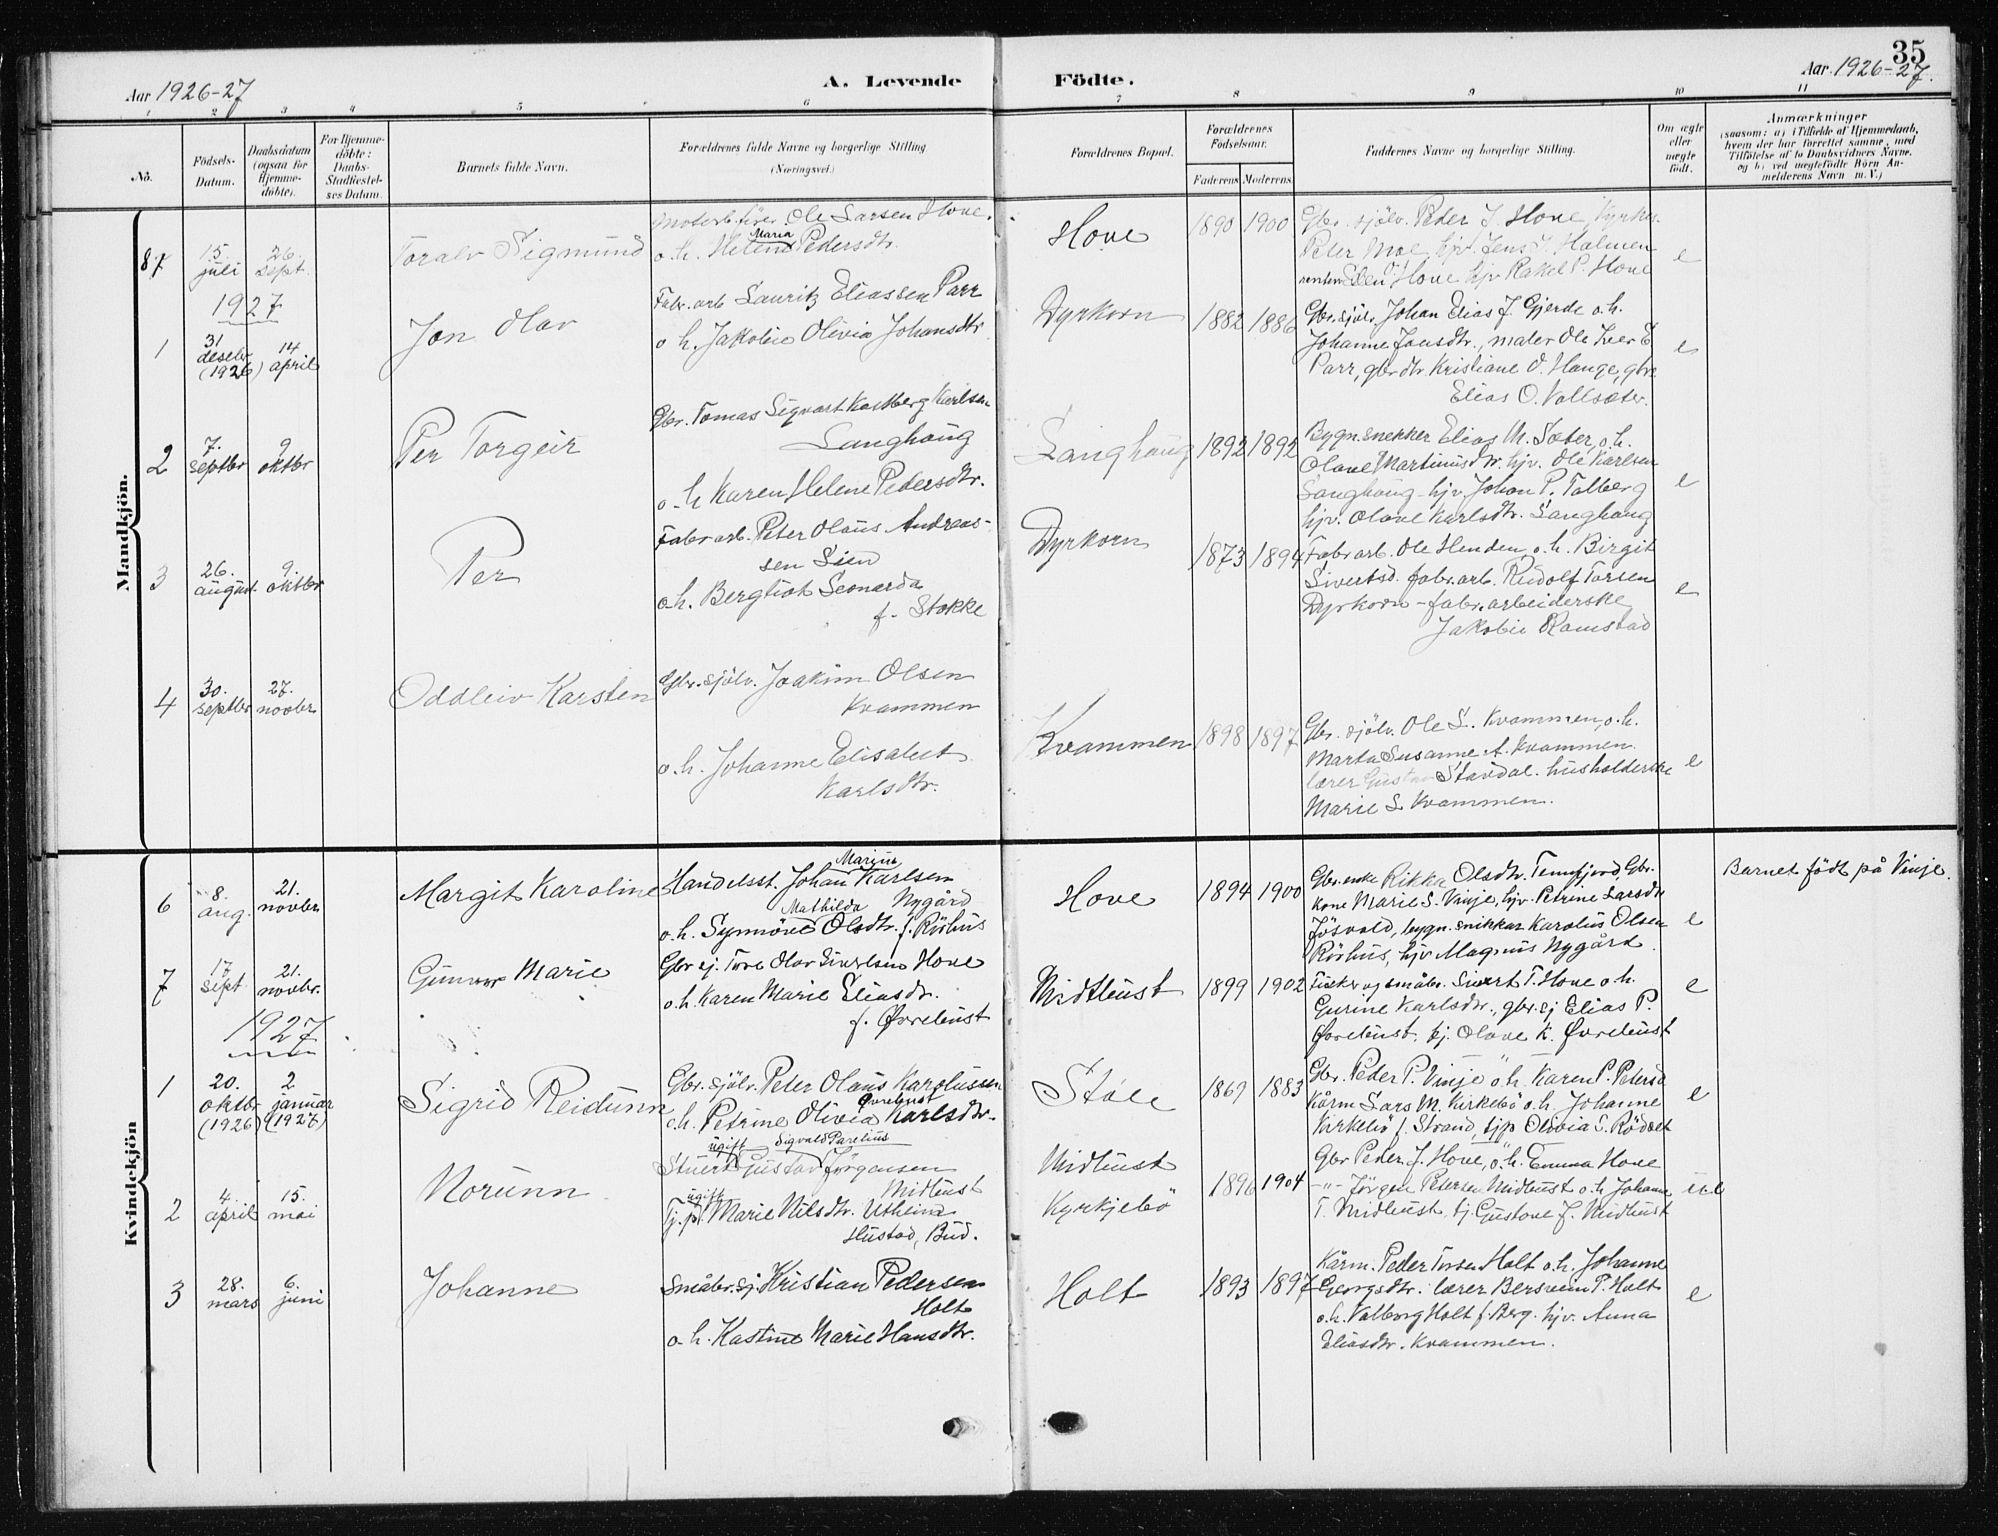 35
Aar 1926-27
A. Levende Födte.
Aar 1926-27.
1 2 3 4 5 6 7 8 9 10 11
No.
Födsels-Datum.
Daabsdatum (ogsaa for Hjemme-döbte).
For Hjemme-döbte: Daabs-Stadfæstel-ses Datum.
Barnets fulde Navn.
Forældrenes fulde Navne og borgerlige Stilling
(Næringsvei.)
Forældrenes Bopæl.
Forældrenes Födselsaar.
Faderens. Moderens.
Faddernes Navne og borgerlige Stilling.
Om ægte eller uægte födt.
Anmærkninger
(saasom: a) i Tilfælde af Hjemmedaab,
hvem der har forrettet samme, med
Tilföielse af to Daabsvidners Navne,
og b) ved uægtefödte Börn An-
melderens Navn m. V.)
Mandkjön.
87 15. juli 26. sept. Toralv Sigmund
Ole Larsen Hove.
o.h. Helene Maria Pedersdtr.
Hove 1890 1900
Gbr. sjölv. Peder J. Hove
Peter Moe, hjv. Jens J. Holmen
Hove hjv Rakel P. Hove
e
1927
1 31 desebr (1926) 14 april Jon Olav
Fabr. arb Lauritz Eliassen Parr
o.h. Jakobie Olivia Johansdtr
Dyrkorn 1882 1886
Gbr. sjölv. Johan Elias J. Gjerde o.h.
Johanne Jonsdtr., maler Ole Iver E
Parr, gbrdtr. Kristiane O. Hauge, gbr.
Elias O. Vollsæter.
e
2 7. septbr 9 oktbr Per Torgeir
Gbr. Tomas Sigvart Kastberg Karlsen
Langhaug
o.h Karen Helene Pedersdtr.
Langhaug 1892 1892
Bygn. snekker Elias M. Sæter, o.h.
Olave Martinusdtr. hjv. Ole Karlsen
Langhaug - hjv. Johan P. Talberg
hjv. Olave Karlsdtr. Langhaug
e
3 26. august 9. oktbr Per
Fabr arb. Peter Olaus Andreas-
sen Lien
o.h. Bergliot Leonarda
f. Stokke
Dyrkorn 1873 1894
Fabr arb. Ole Henden o.h. Birgit
Sivertsd. fabr. arb. Rudolf Torsen
Dyrkorn - fabr. arbeiderske
Jakobie Ramstad
e
4 30. septbr 27. novbr Oddleiv Karsten
Gbr. sjölv. Joakim Olsen
Kvammen
o.h. Johanne Elisabet
Karlsdtr.
Kvammen 1898 1897
Gbr. sjölv. Ole L. Kvammen, o.h.
Marta Susanne A. Kvammen.
lærer Gustav Stavdal. husholderske
Marie L Kvammen.
e
Kvindekjön
6 8. aug. 21. novbr Margit Karoline
Handelsst. Johan Marius Karlsen
Nygård
o.h. Synnöve Mathilda Olsdtr. f. Rörhus
Hove 1894 1900
Gbr. enke Rikka Olsdtr. Tennfjord, Gbr.
kone Marie S. Vinje, hjv. Petrine Larsdtr
Jösvold, bygn. snikkar Karolus Olsen
Rörhus, hjv Magnus Nygård.
e Barnet födt på Vinje.
7 17 sept 21. novbr. Gunvor Marie
Gbr sj. Tore Olav Sivertsen Hove
o.h. Karen Marie Eliasdtr.
f. Øvrelunst
Midtlunst 1899 1902
Fisker og småbr. Sivert T. Hove o.h.
Gurine Karlsdtr., gbr. sj Elias P.
Øvrelunst, tj. Olave K. Øvrelunst
e
1927
1 20. oktbr (1926) 2 januar (1927) Sigrid Reidunn
Gbr. sjölv. Peter Olaus Karolussen
Øvrelunst
o.h. Petrine Olivia Karlsdtr.
Støle 1869 1883
Gbr. Peder P. Vinje o.h. Karen P. Petersd
Kårm Lars M. Kirkebö o.h. Johanne
Kirkebö f. Strand, tjp Olivia S. Rödset
e
2 4. april 15. mai Norunn
ugift Sigvald Parelius
Stuert Gustav Jörgensen
Midlunst
ugift
Tj. p. Marie Nilsdtr. Utheim
Hustad, Bud.
Midlunst
Kyrkjebö
1896 1904
Gbr Peder J. Hove, o.h. Emma Hove
-"- Jörgen Petersen Midlunst o.h Johanne
T. Midlunst, tj. Gustave J. Midlunst
3 28. mars 6. juni Johanne
Småbr. sj. Kristian Pedersen
Holt
o.h. Kastine Marie Hansdtr.
Holt 1893 1897
Kårm. Peder Torsen Holt o.h. Johanne
Georgsdtr. lærer Bersvein P. Holt
o.h. Valborg Holt f. Berg. hjv. Anna
Eliasdtr. Kvammen.
e